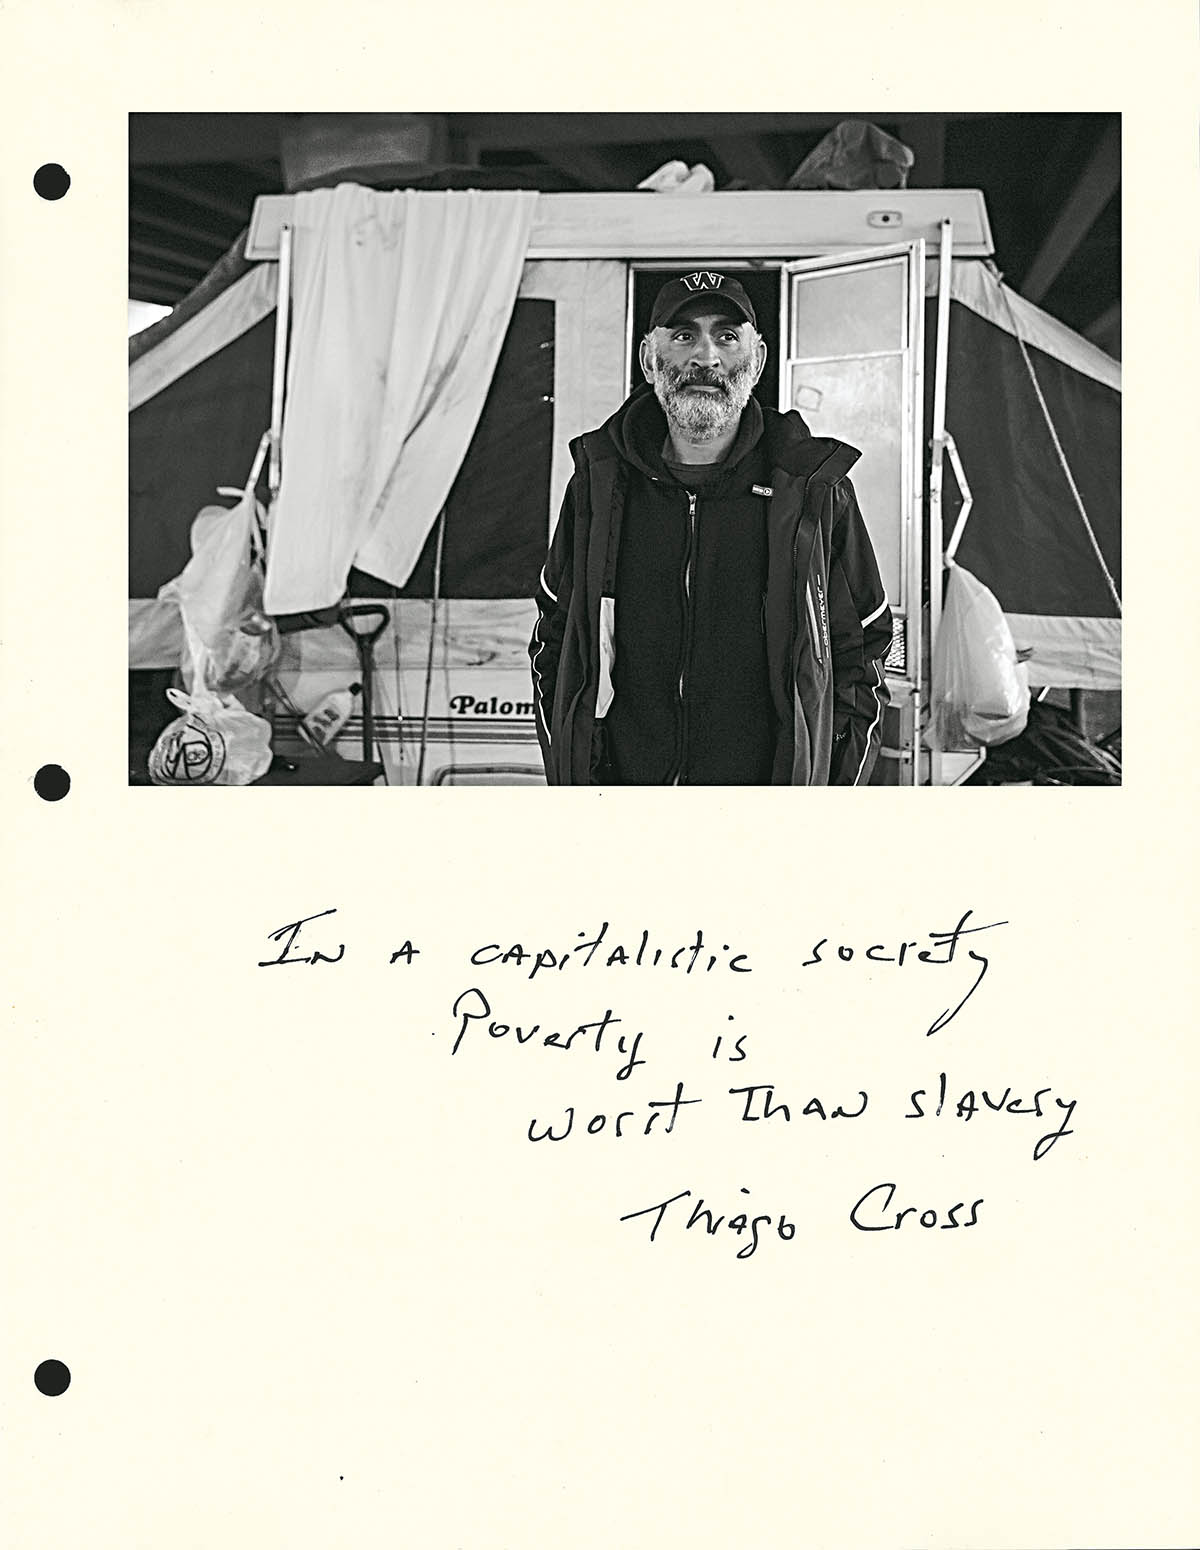 W
OBERMEYER
Palom
In A capitalistic society
Poverty is
worst Than slavery
Thiago Cross